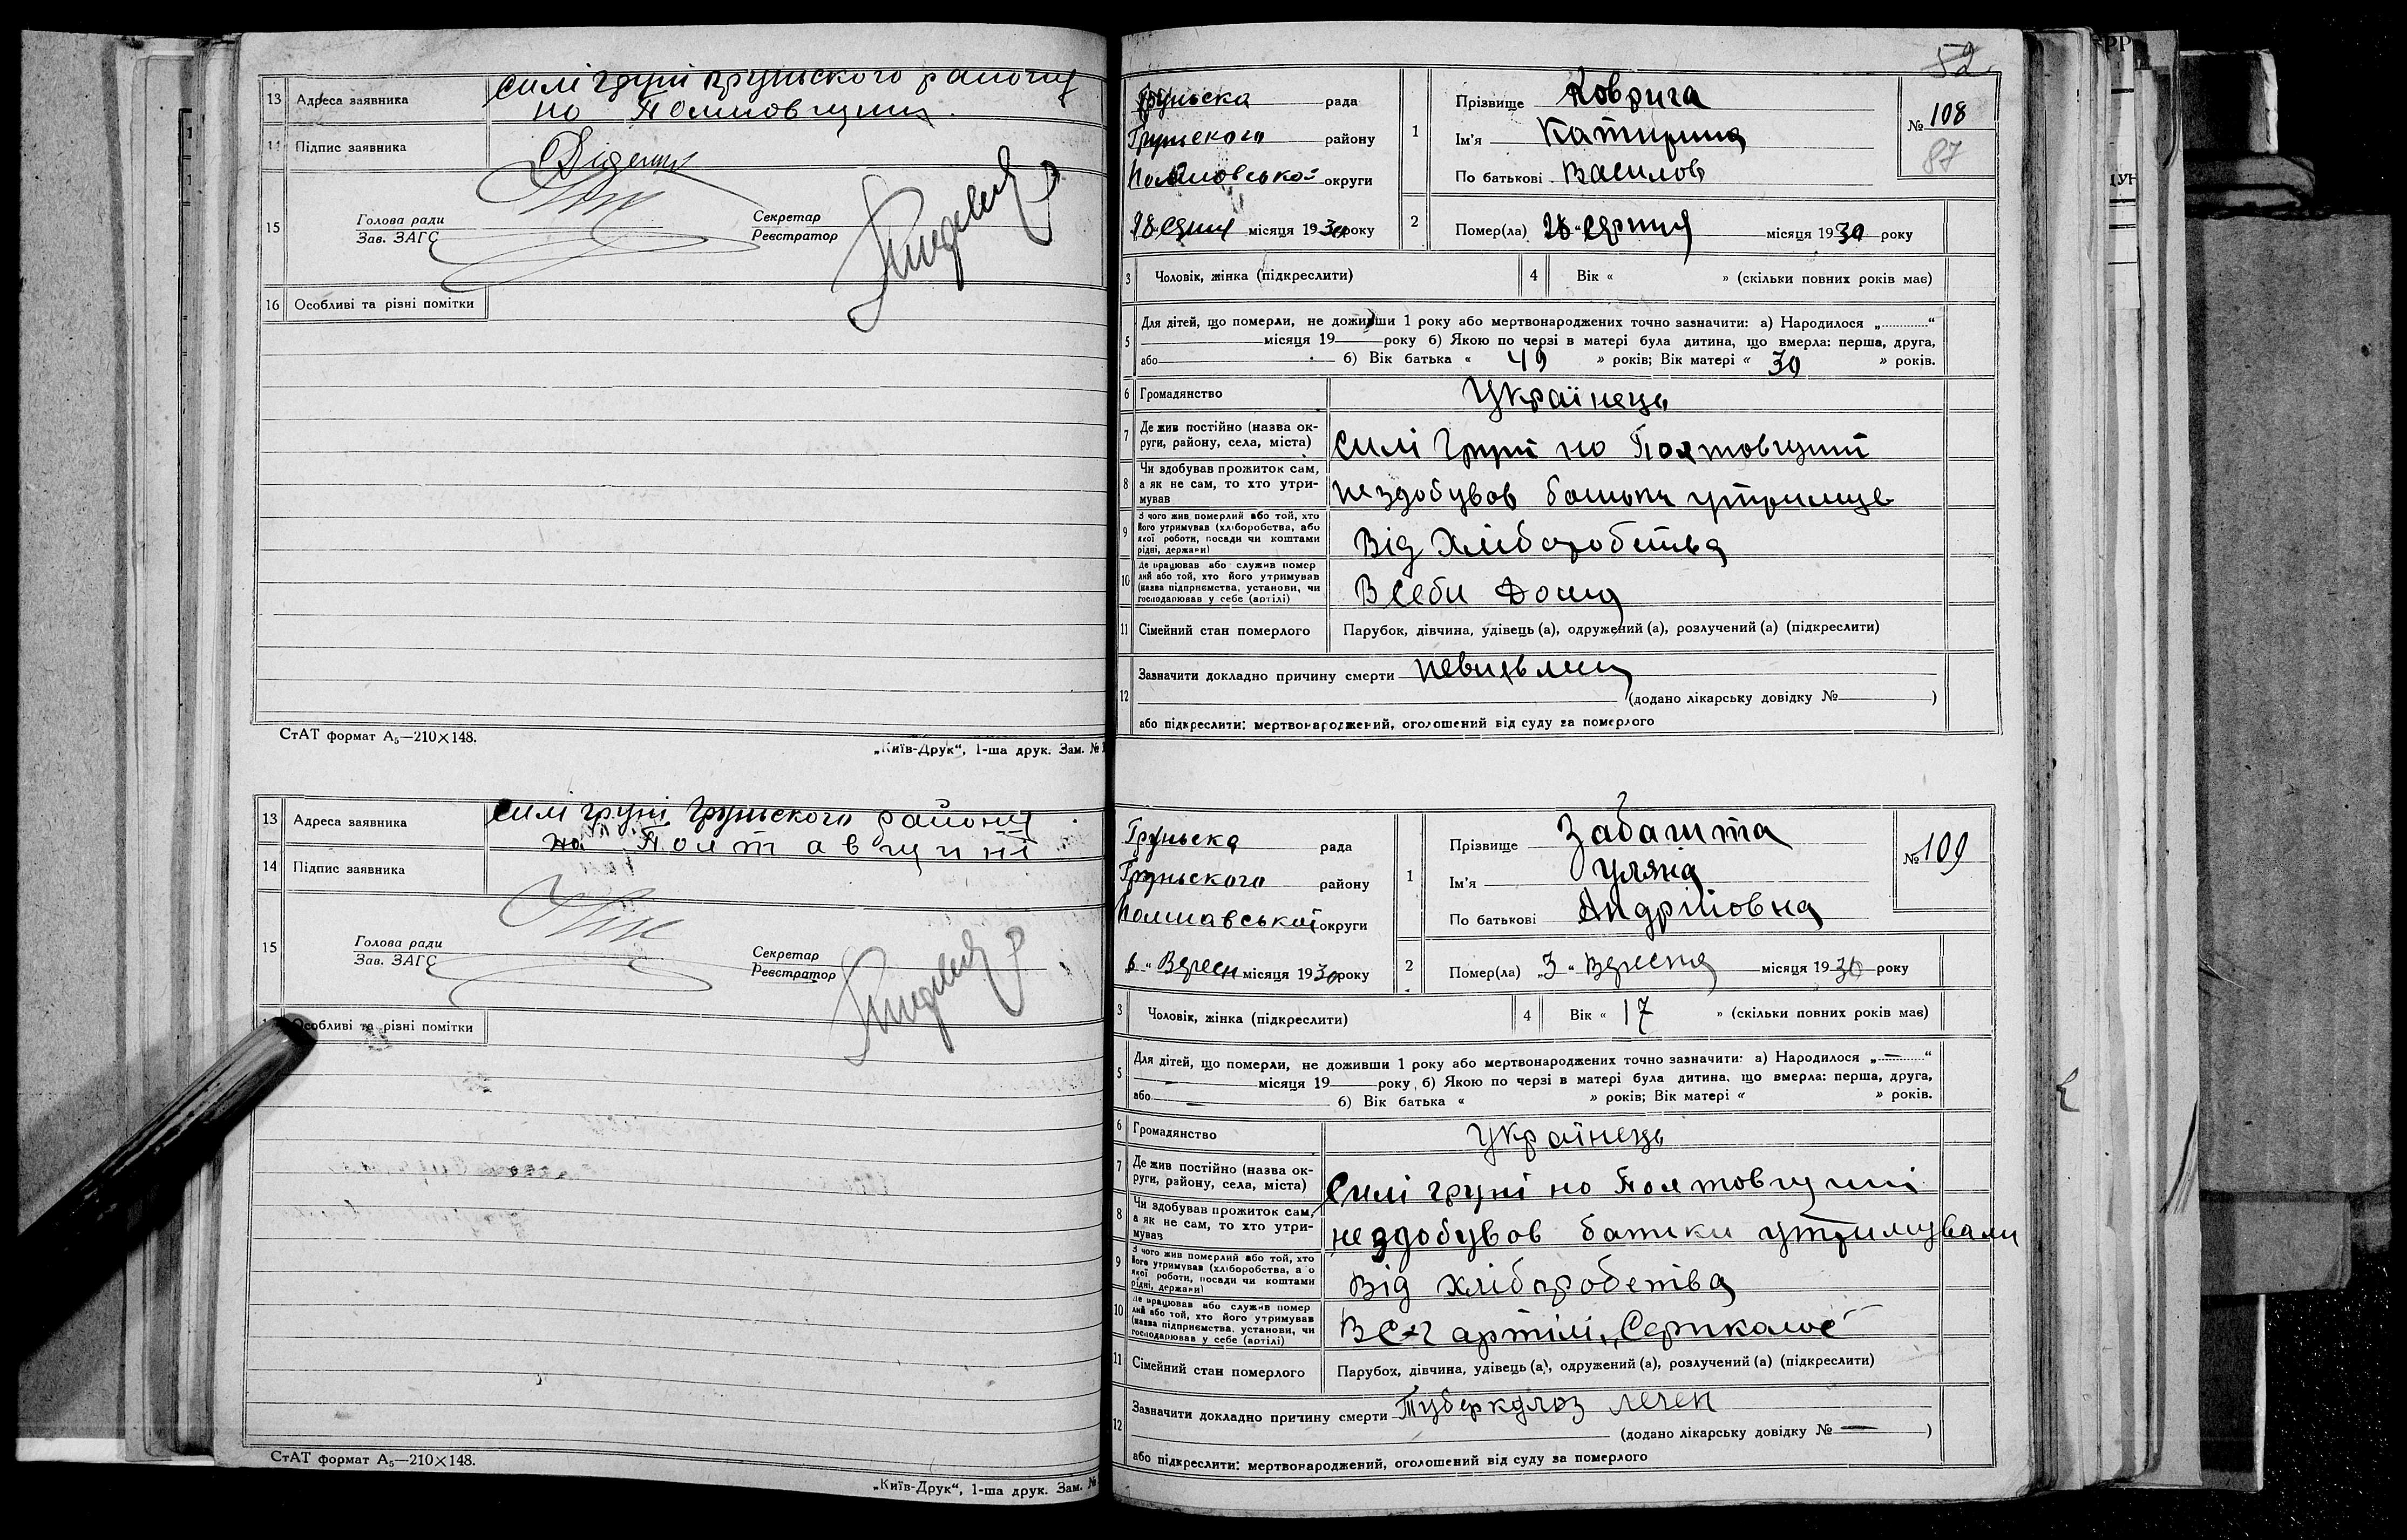 13 Адреса заявника
силі груні грунського району
но Полтовщини.
14 Підпис заявника
15
Голова ради
Зав. ЗАГС
Секретар
Реєстратор
16 Особливі та різні помітки
СтАТ формат А₅—210×148.
„Київ-Друк“, 1-ша друк. Зам. №
13 Адреса заявника
силі груні грунського району
на Полтавщині
14 Підпис заявника
15
Голова ради
Зав. ЗАГС
Секретар
Реєстратор
Особливі та різні помітки
СтАТ формат А₅—210×148.
„Київ-Друк“, 1-ша друк. Зам. №
52
Груньска рада
Груньского району
округи
28 серпня місяця 1930 року
1
Прізвище Коврига
Ім'я Катирина
По батькові Васил​ов
№ 108
87
2 Помер(ла) 28 „ серпня місяця 1930 року
3 Чоловік, жінка (підкреслити)
4 Вік « » (скільки повних років має)
5 Для дітей, що померли, не доживши 1 року або мертвонароджених точно зазначити: а) Народилося „............“
місяця 19 року б) Якою по черзі в матері була дитина, що вмерла: перша, друга,
або б) Вік батька « 49 » років; Вік матері « 30 » років.
6 Громадянство Українець
7 Де жив постійно (назва ок-
руги, району, села, міста) силі Груні но Полтовщині
8 Чи здобував прожиток сам,
а як не сам, то хто утри-
мував нездобував батьки утримув
9 З чого жив померлий або той, хто
його утримував (хліборобства, або
якої роботи, посади чи коштами
рідні, держави) Від хліборобства
10 Де працював або служив помер
лий або той, хто його утримував
(назва підприємства, установи, чи
господарював у себе (артілі) В себи дома
11 Сімейний стан померлого Парубок, дівчина, удівець (а), одружений (а), розлучений (а) (підкреслити)
12 Зазначити докладно причину смерти
(додано лікарську довідку № )
або підкреслити: мертвонароджений, оголошений від суду за померлого
Груньска рада
Груньского району
Полтавської округи
6 „ Вересн місяця 1930 року
1
Прізвище Забашта
Ім'я Уляна
По батькові Андрійовна
№ 109
2 Помер(ла) „3 „ Вересня місяця 1930 року
3 Чоловік, жінка (підкреслити)
4 Вік « 17 » (скільки повних років має)
5 Для дітей, що померли, не доживши 1 року або мертвонароджених точно зазначити: а) Народилося „—“
— місяця 19 року, б) Якою по черзі в матері була дитина, що вмерла: перша, друга,
або — б) Вік батька « » років; Вік матері « » років.
6 Громадянство Українець
7 Де жив постійно (назва ок-
руги, району, села, міста) Силі груні но Полтовщині
8 Чи здобував прожиток сам,
а як не сам, то хто утри-
мував нездобував батики утримували
9 З чого жив померлий або той, хто
його утримував (хліборобства, або
якої роботи, посади чи коштами
рідні, держави) Від хліборобства
10 Де працював або служив помер
лий або той, хто його утримував
(назва підприємства, установи, чи
господарював у себе (артілі) артілі
11 Сімейний стан померлого Парубох, дівчина, удівець (а), одружений (а), розлучений (а) (підкреслити)
12 Зазначити докладно причину смерти Туберкулоз легень
(додано лікарську довідку № — )
або підкреслити: мертвонароджений, оголошений від суду за померлого